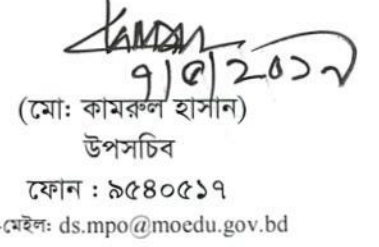 ৭|৫|২০১৭
(মো: কামরুল হাসান)
উপসচিব
ফোন : ৯৫৪০৫১৭
-মেইল: ds.mpo@moedu.gov.bd